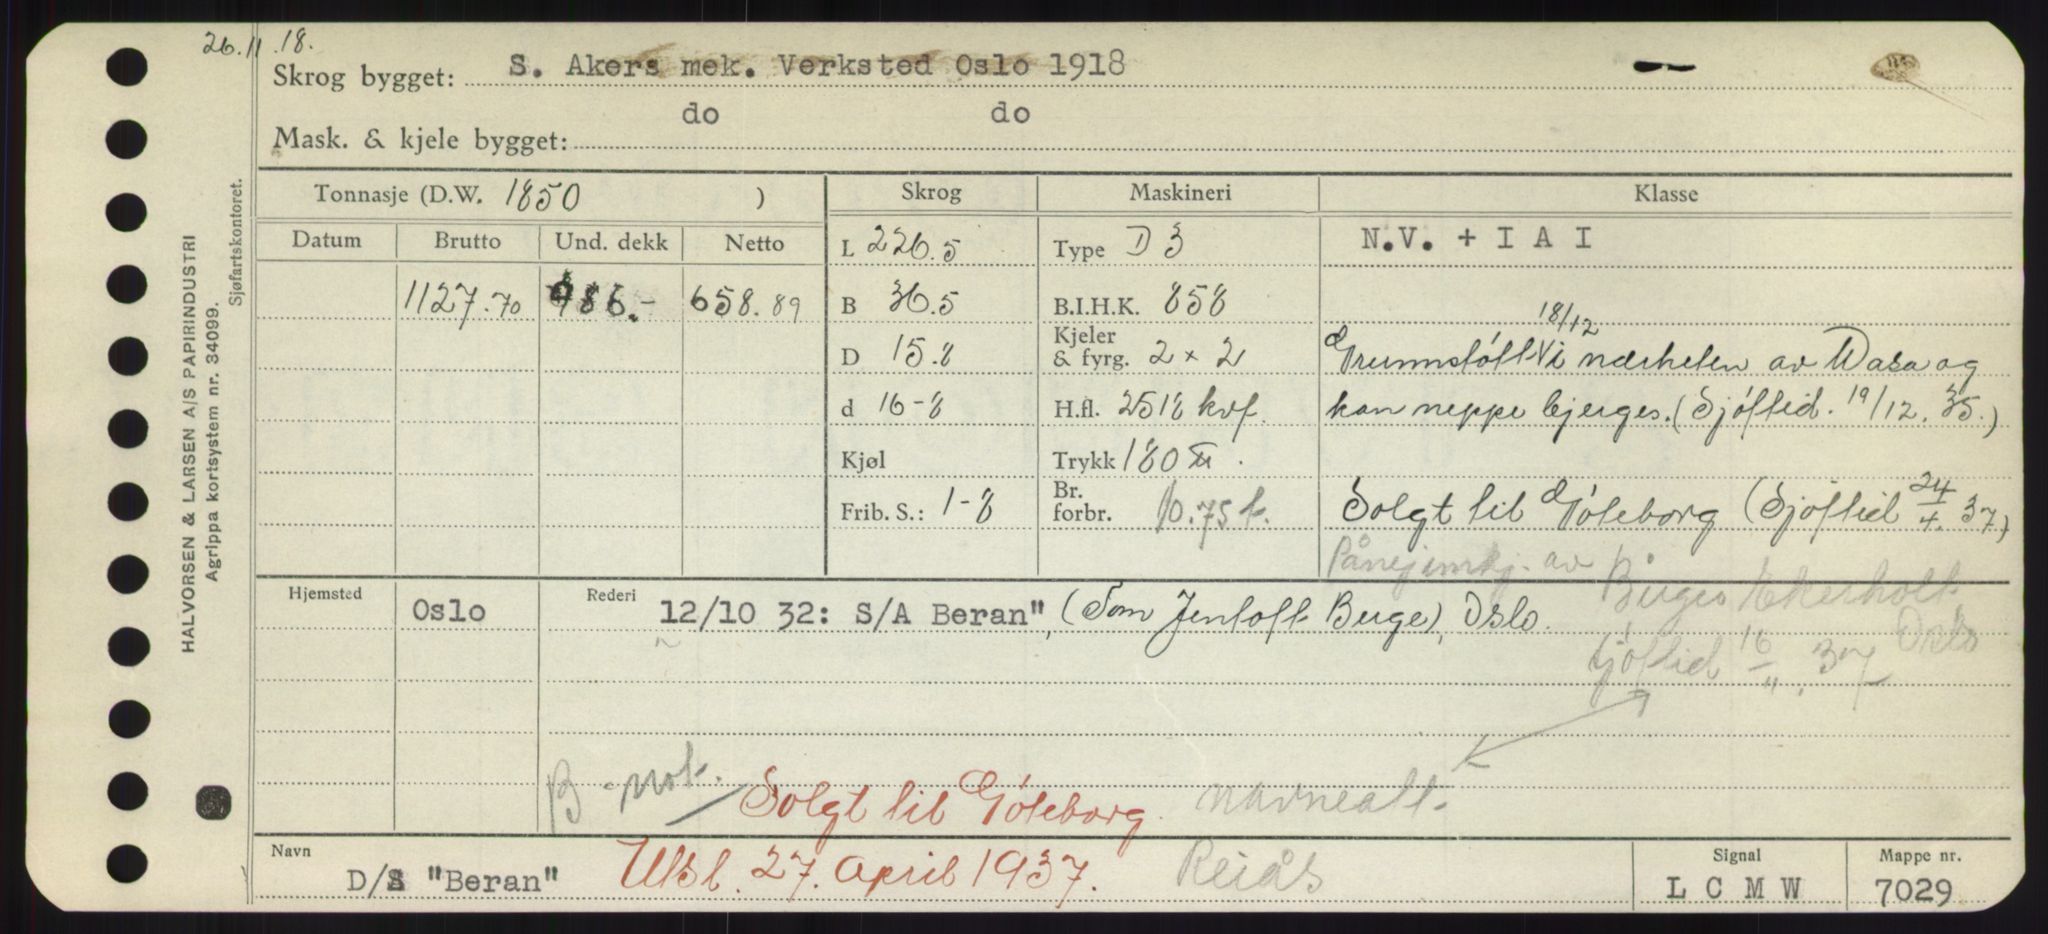 26.11.18.
Skrog bygget: S. Akers mek. Verksted Oslo 1918
do do
Mask. & kjele bygget:
Tonnasje (D.W. 1850 )
Skrog Maskineri Klasse
Datum Brutto Und. dekk Netto
L 226.5 Type D 3 N.V. + I A I
1127.70 986.- 658.89
B 36.5 B.I.H.K. 858
18/12
D 15.8 Kjeler & fyrg. 2 x 2 Grunnstøtt i nærheten av Wasa og
d 16-8 H.fl. 2518 kvf. kan neppe bjerges. (Sjøftid. 19/12. 35.)
Kjøl Trykk 180
Frib. S.: 1-8 Br. forbr. 10.75 t. Solgt til Göteborg (Sjøftid 24/4. 37)
av Birger Ekerholt
Oslo
Sjøftid 16/11. 37
Hjemsted Oslo Rederi 12/10 32: S/A Beran", (Tom Jentoft Berge), Oslo.
B-not. Solgt til Göteborg. navnealt.
Navn D/S "Beran" Utsl. 27. April 1937. Reiås
Signal L C M W
Mappe nr. 7029
HALVORSEN & LARSEN A/S PAPIRINDUSTRI
Agrippa kortsystem nr. 34099.
Sjøfartskontoret.